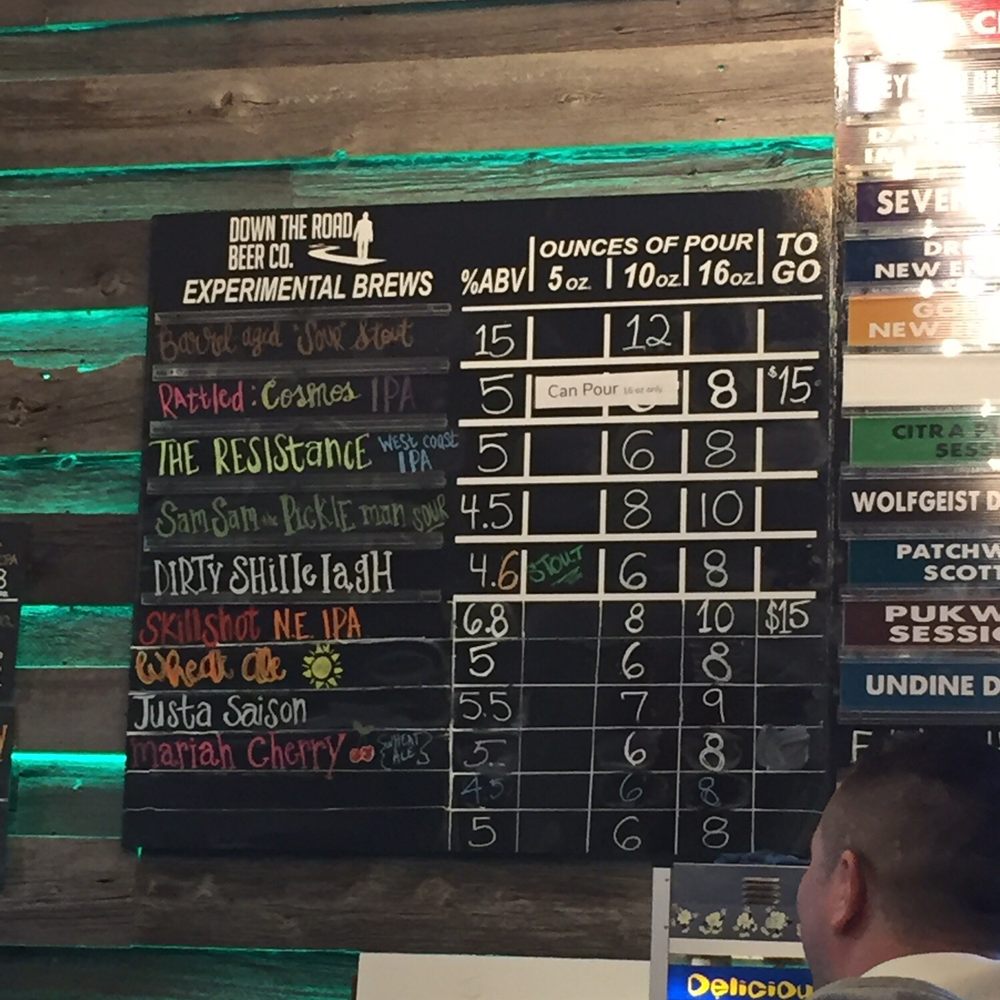 DOWN THE ROAD
BEER CO.
EXPERIMENTAL BREWS
%ABV
OUNCES OF POUR
5 oz. 10 oz. 16 oz.
TO GO
Barrel aged "Sour" Stout 15 12
RAttled: Cosmos IPA 5 Can Pour 16 oz only 8 $15
THE RESIStance WEST COAST IPA 5 6 8
SamSam the PICKlE man SOUR 4.5 8 10
DIRTy SHIllelagH 4.6 STOUT 6 8
Skillshot N.E. IPA 6.8 8 10 $15
Wheat ale 5 6 8
Justa Saison 5.5 7 9
mariah Cherry WHEAT ALE 5 6 8
4.5 6 8
5 6 8
SEVE
DR
NEW E
GO
NEW
CITRA P
SESS
WOLFGEIST D
PATCHW
SCOTT
PUKW
SESSIO
UNDINE D
Deliciou